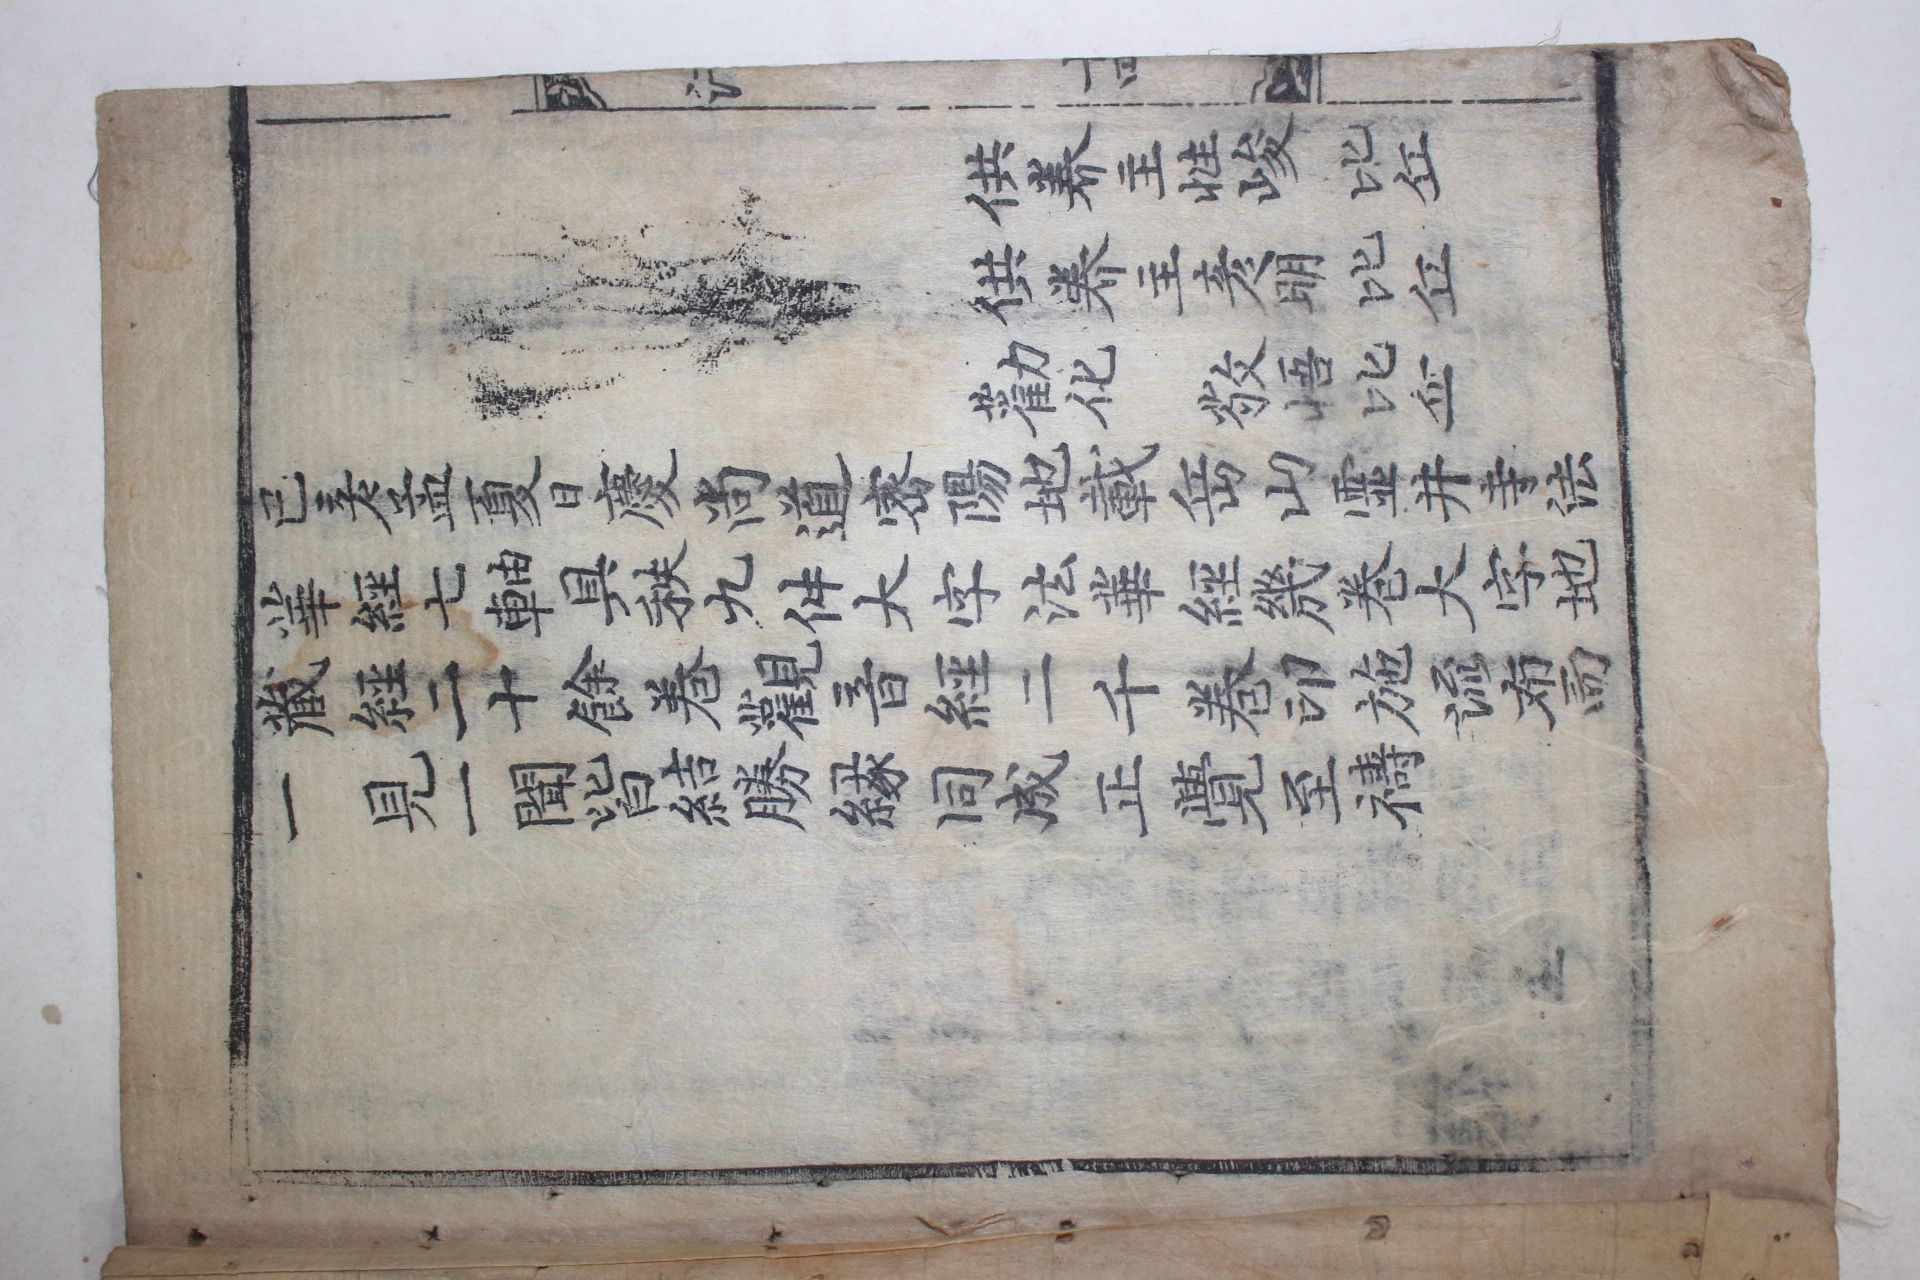 供養主性峻比丘
供養主彦明比丘
勸化 敬悟比丘
已彦孟夏日慶尚道密陽地載岳山靈井寺法
華經七軸具秩九件大字法華經幾巻大字地
藏經二十餘巻觀音經二千巻印施流布而
一見一聞皆結勝縁同成正覺至禱